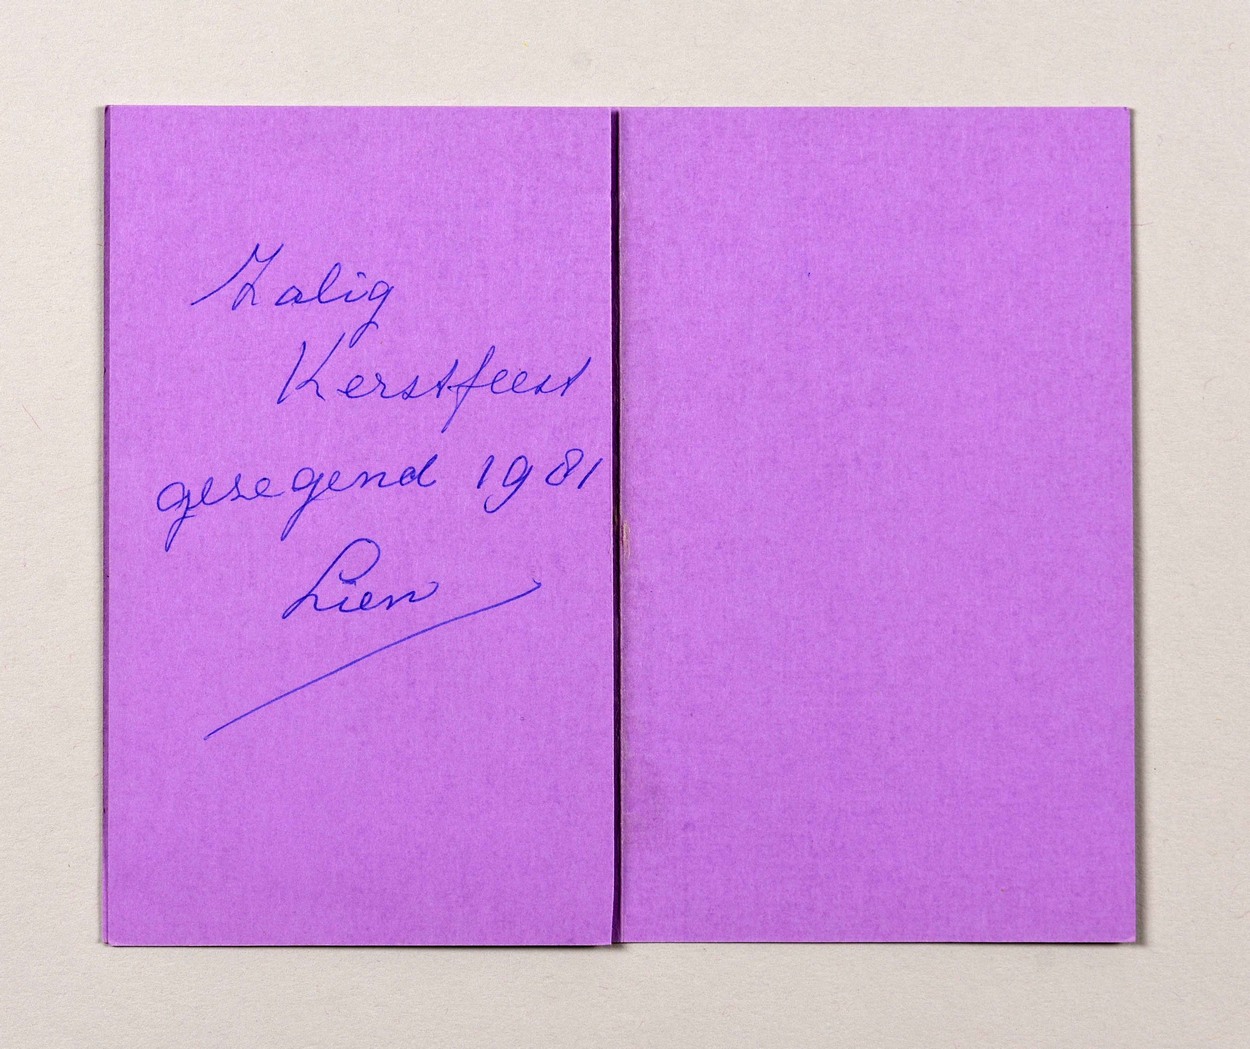 Zalig
Kerstfeest
gezegend 1981
Lien